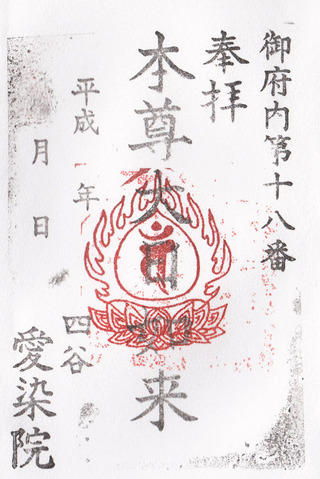 御府内第十八番
奉拝
本尊大日如来
平成　年
月　日
四谷
愛染院